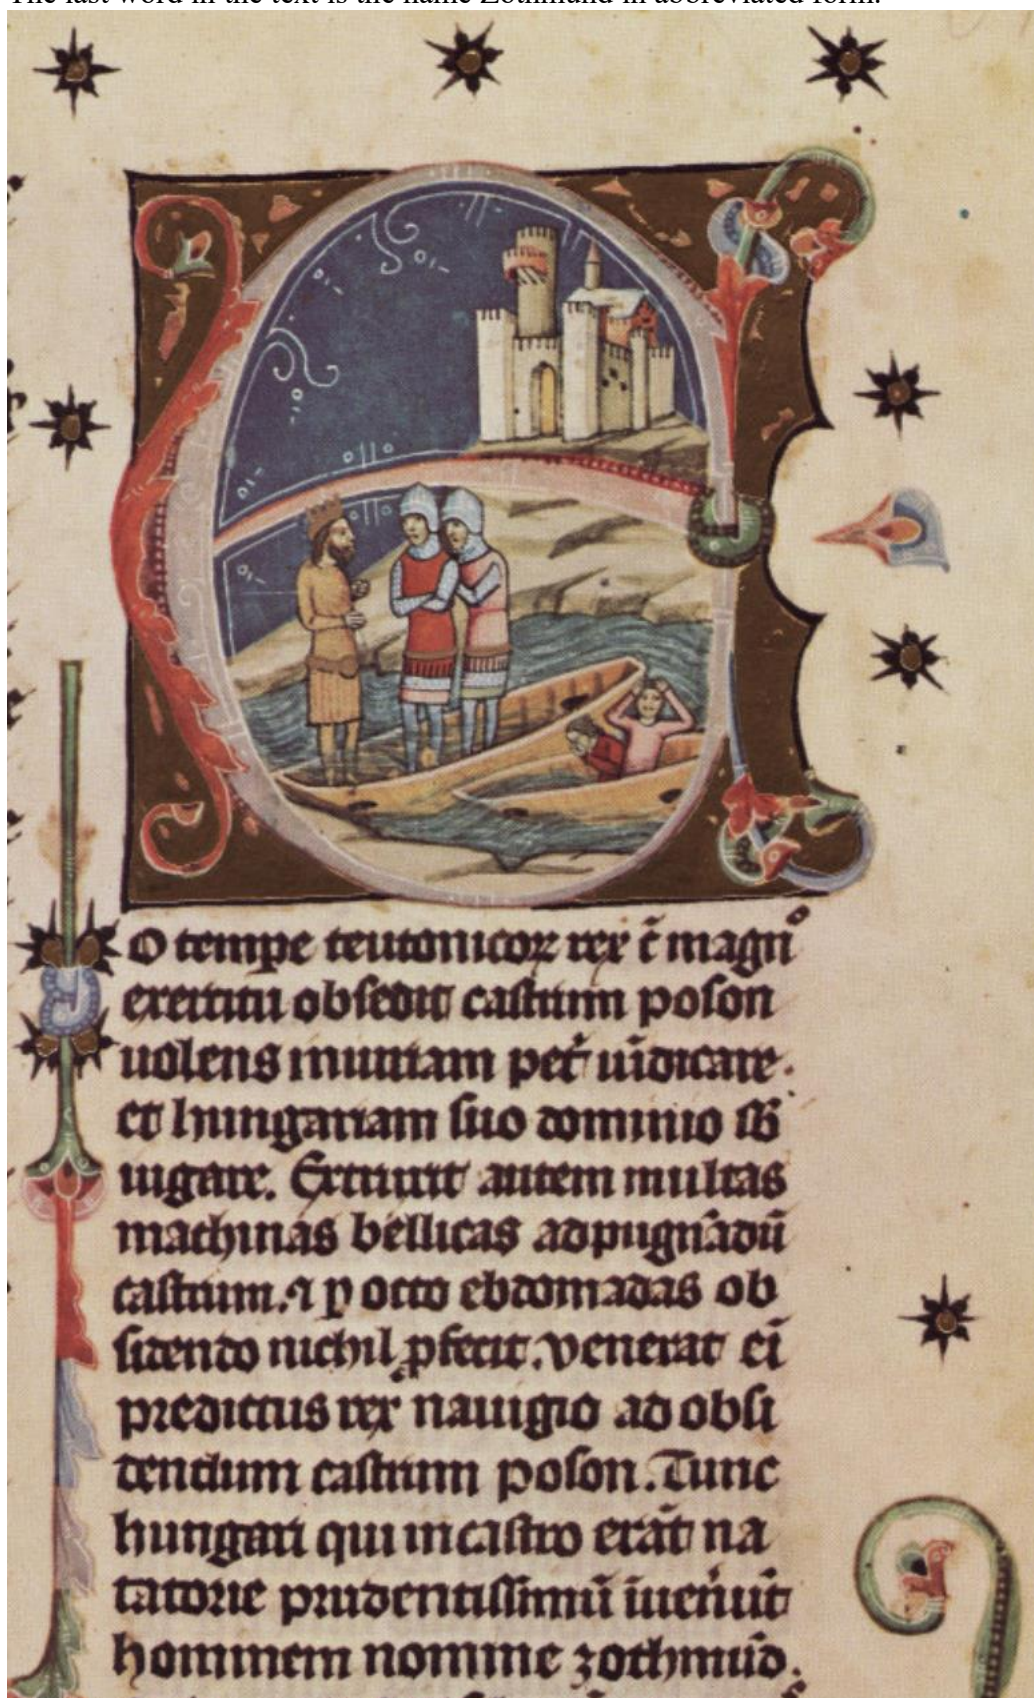 The last word in the text is the name Zothmund in abbreviated form.
E
O tempe teutonicoꝝ rex c̄ magnͦ
exercitu obsedit castrum poson
uolens iniuriam pet̄ uīdicare.
et hungariam suo dominio sb̄
iugare. Extruxit autem multas
machinas bellicas ad pugnādū
castrum. ⁊ p̱ octo ebdomadas ob
sidendo nichil ꝓfecit. venerat eī
predictus rex nauigio ad obsi
dendum castrum poson. Tunc
hungari qui in castro erāt na
tatorie prudentissimū īuen̄ūt
hominem nomine zothmūd.